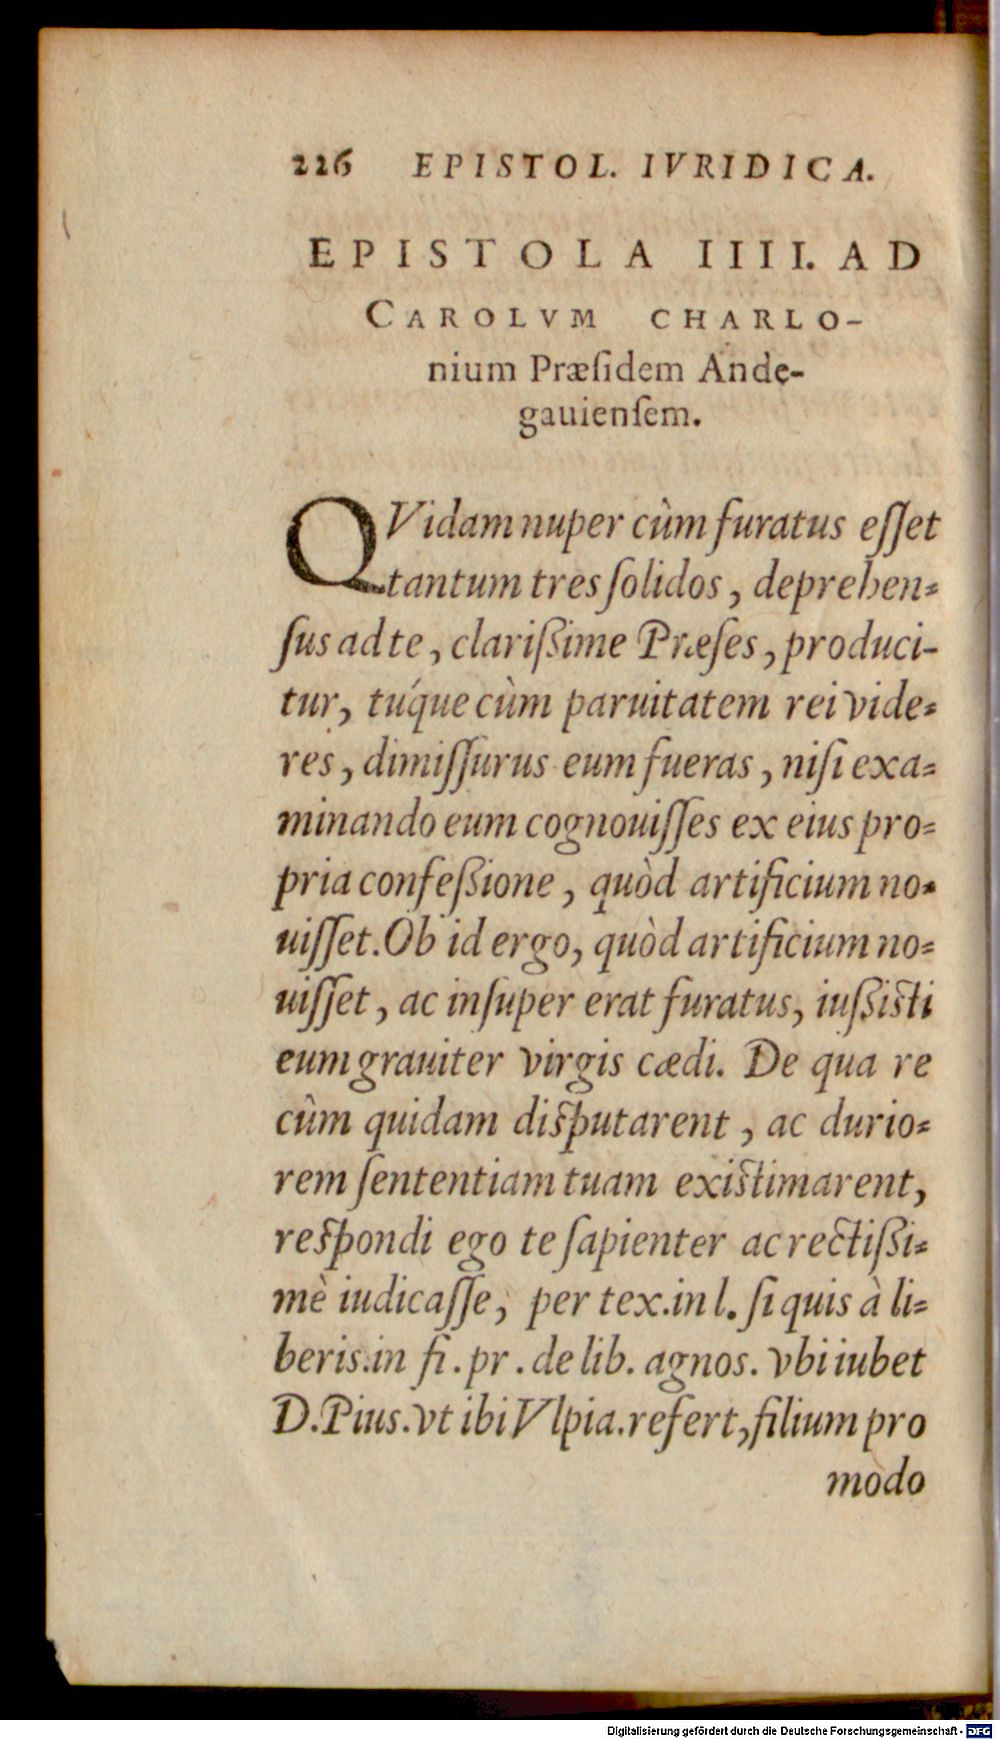 226 EPISTOL. IVRIDICA.
EPISTOLA IIII. AD
CAROLVM CHARLO-
nium Præſidem Ande-
gauienſem.
QVidam nuper cùm furatus eſſet
tantum tres ſolidos, deprehen-
ſus ad te, clarißime Præſes, produci-
tur, túque cùm paruitatem rei vide-
res, dimiſſurus eum fueras, niſi exa-
minando eum cognouiſſes ex eius pro-
pria confeßione, quòd artificium no-
uiſſet. Ob id ergo, quòd artificium no-
uiſſet, ac inſuper erat furatus, iußiſti
eum grauiter virgis cædi. De qua re
cûm quidam diſputarent, ac durio-
rem ſententiam tuam exiſtimarent,
reſpondi ego te ſapienter ac rectißi-
mè iudicaſſe, per tex. in l. ſi quis à li-
beris. in fi. pr. de lib. agnos. vbi iubet
D. Pius. vt ibi Vlpia. refert, filium pro
modo
Digitalisierung gefördert durch die Deutsche Forschungsgemeinschaft - DFG